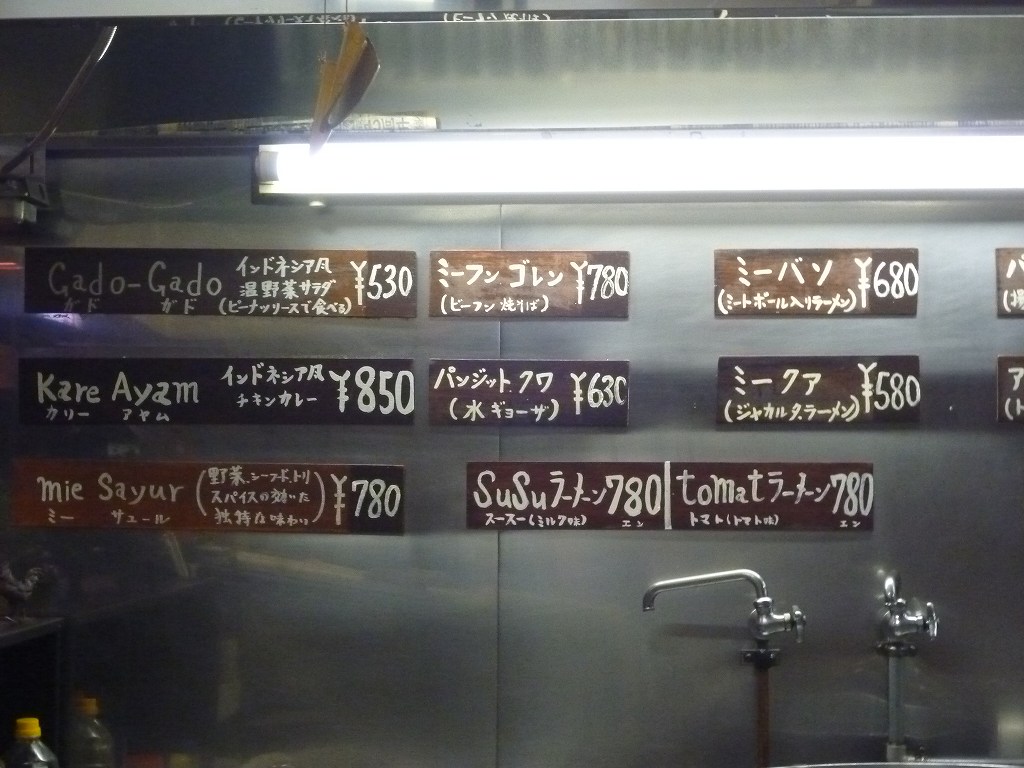 Gado-Gado
ガド ガド
インドネシア風
温野菜サラダ
(ピーナッツソースで食べる)
¥530
ミーフン ゴレン
(ビーフン 焼そば)
¥780
ミーバソ
(ミートボール入りラーメン)
¥680
Kare Ayam
カリー アヤム
インドネシア風
チキンカレー
¥850
パンジット クワ
(水 ギョーザ)
¥630
ミークア
(ジャカルタ.ラーメン)
¥580
mie Sayur
ミー サユール
(野菜.シーフード.トリ
スパイスの効いた
独特な味わい)
¥780
SuSuラーメン780
スースー(ミルク味) エン
tomatラーメン780
トマト(トマト味) エン